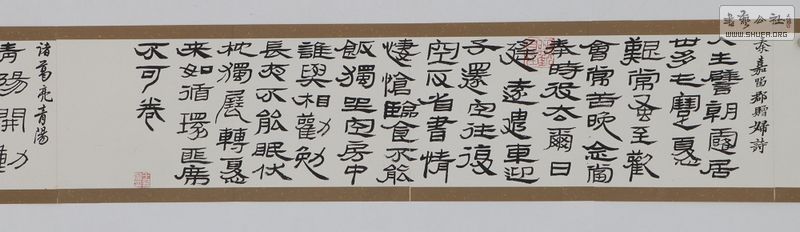 秦嘉留郡贈婦詩
人生譬朝露居
世多屯蹇憂
艱常蚤至歡
會常苦晚念當
奉時役去爾日
遙遠遣車迎
子還空往復
空反省書情
悽愴臨食不能
飯獨坐空房中
誰與相勸勉
長夜不能眠伏
枕獨展轉憂
來如循環匪席
不可卷
諸葛亮青陽
青陽開動
书艺公社
WWW.SHUFA.ORG